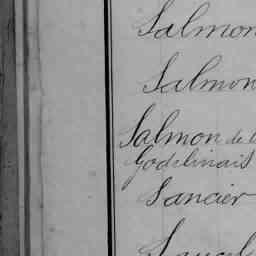 Salmon
Salmon
Salmon de
Godelinais
Sancier